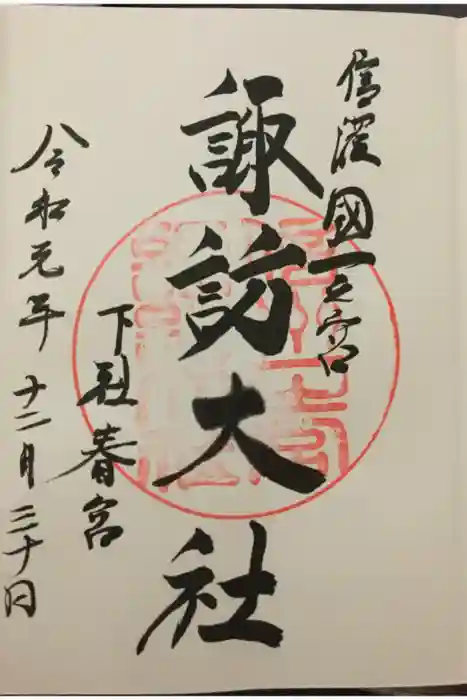 信濃國一之宮
諏訪大社
下社春宮
令和元年十二月三十日